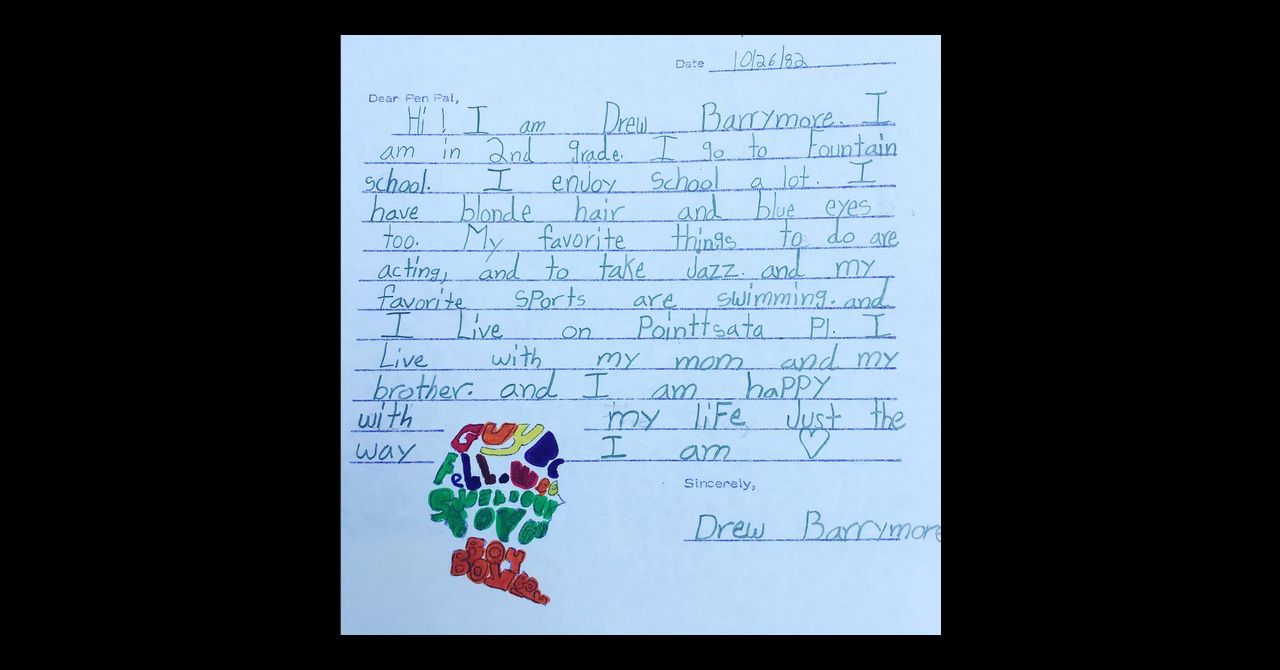 Date 10/26/82
Dear Pen Pal,
Hi! I am Drew Barrymore. I
am in 2nd grade. I go to Fountain
school. I enjoy school a lot. I
have blonde hair and blue eyes
too. My favorite things to do are
acting, and to take Jazz. and my
favorite sports are swimming. and
I Live on Pointtsata Pl. I
Live with my mom and my
brother. and I am happy
with my life Just the
way I am ♡
Sincerely,
Drew Barrymore
GUY
FELLOW
TOY
BOY